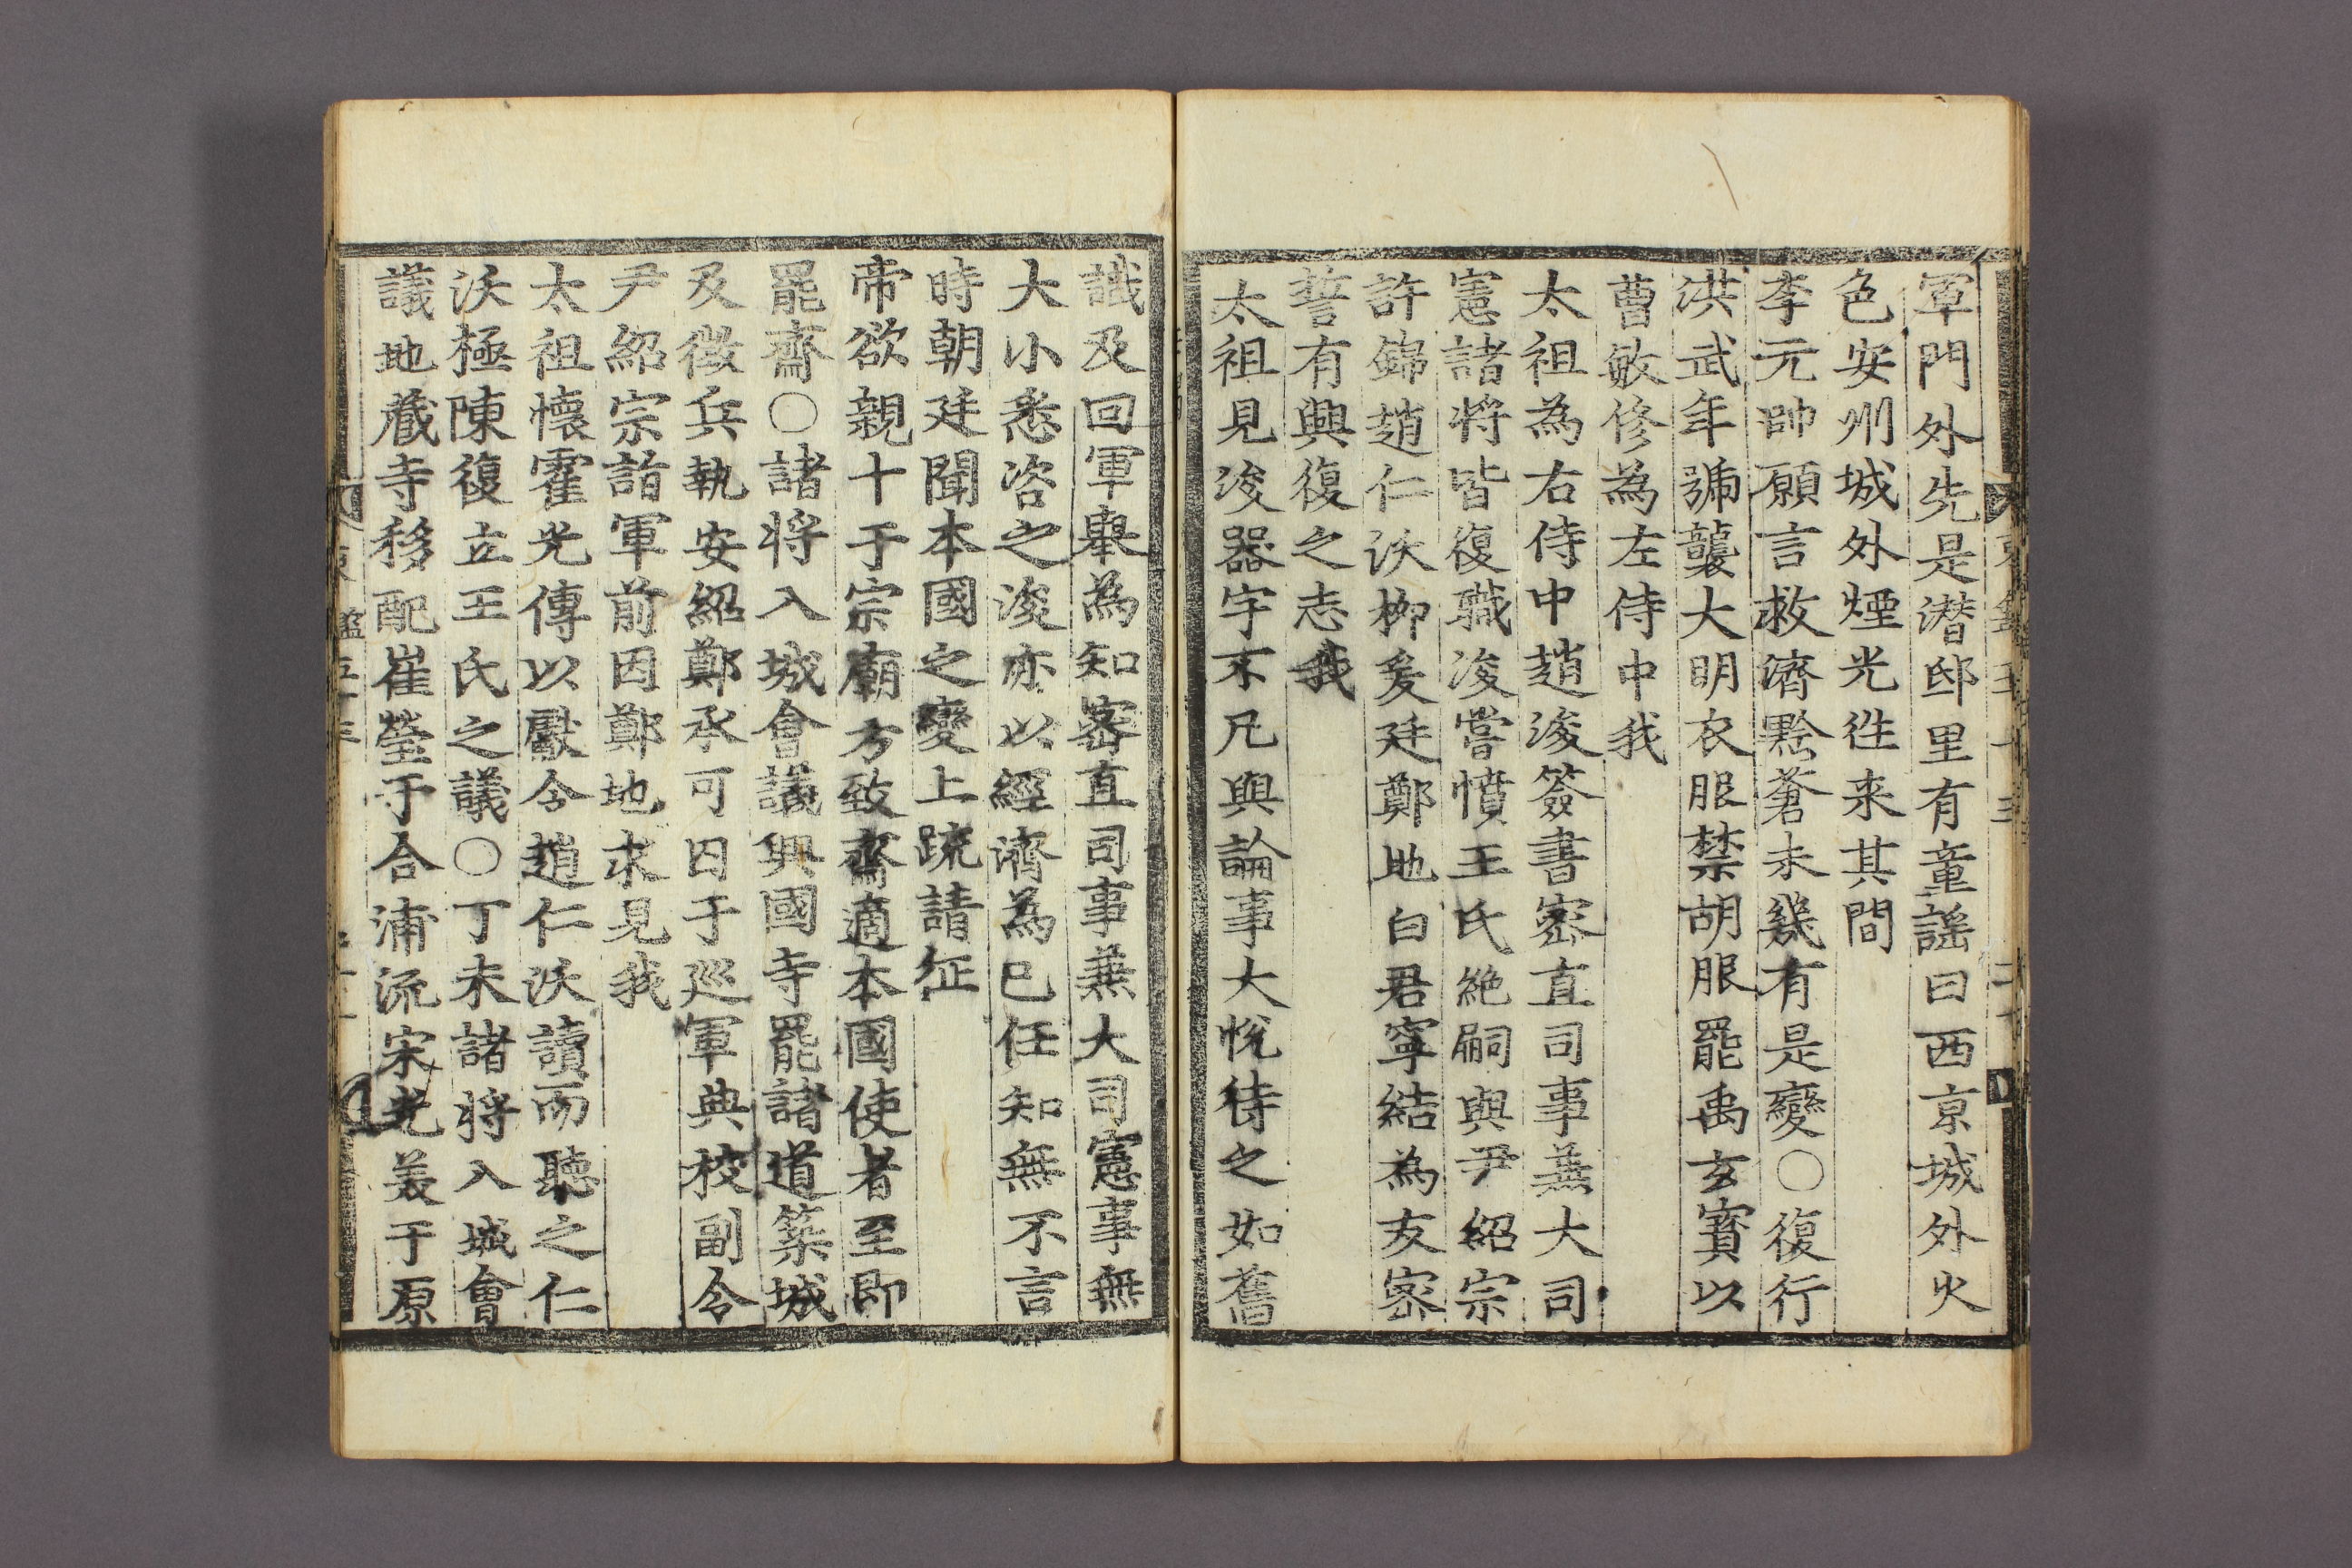 軍門外先是潛邸里有童謠曰西京城外火
色安州城外煙光徃来其間
李元帥願言救濟黔蒼未幾有是變○復行
洪武年號襲大明衣服禁胡服罷禹玄寶以
曹敏修為左侍中我
太祖為右侍中趙浚簽書密直司事兼大司
憲諸將皆復職浚嘗憤王氏絶嗣與尹紹宗
許錦趙仁沃柳爰廷鄭地白君寧結為友密
誓有興復之志我
太祖見浚器宇不凡與論事大恱待之如舊
識及回軍舉為知密直司事兼大司憲事無
大小悉咨之浚亦以經濟為已任知無不言
時朝廷聞本國之變上䟽請征
帝欲親十于宗廟方致齋適本國使者至即
罷齋○諸將入城會議興國寺罷諸道築城
及徵兵執安紹鄭承可囚于巡軍典校副令
尹紹宗詣軍前因鄭地求見我
太祖懷霍光傳以獻令趙仁沃讀而聽之仁
沃極陳復立王氏之議○丁未諸將入城會
議地蔵寺移配崔瑩于合浦流宋光美于原